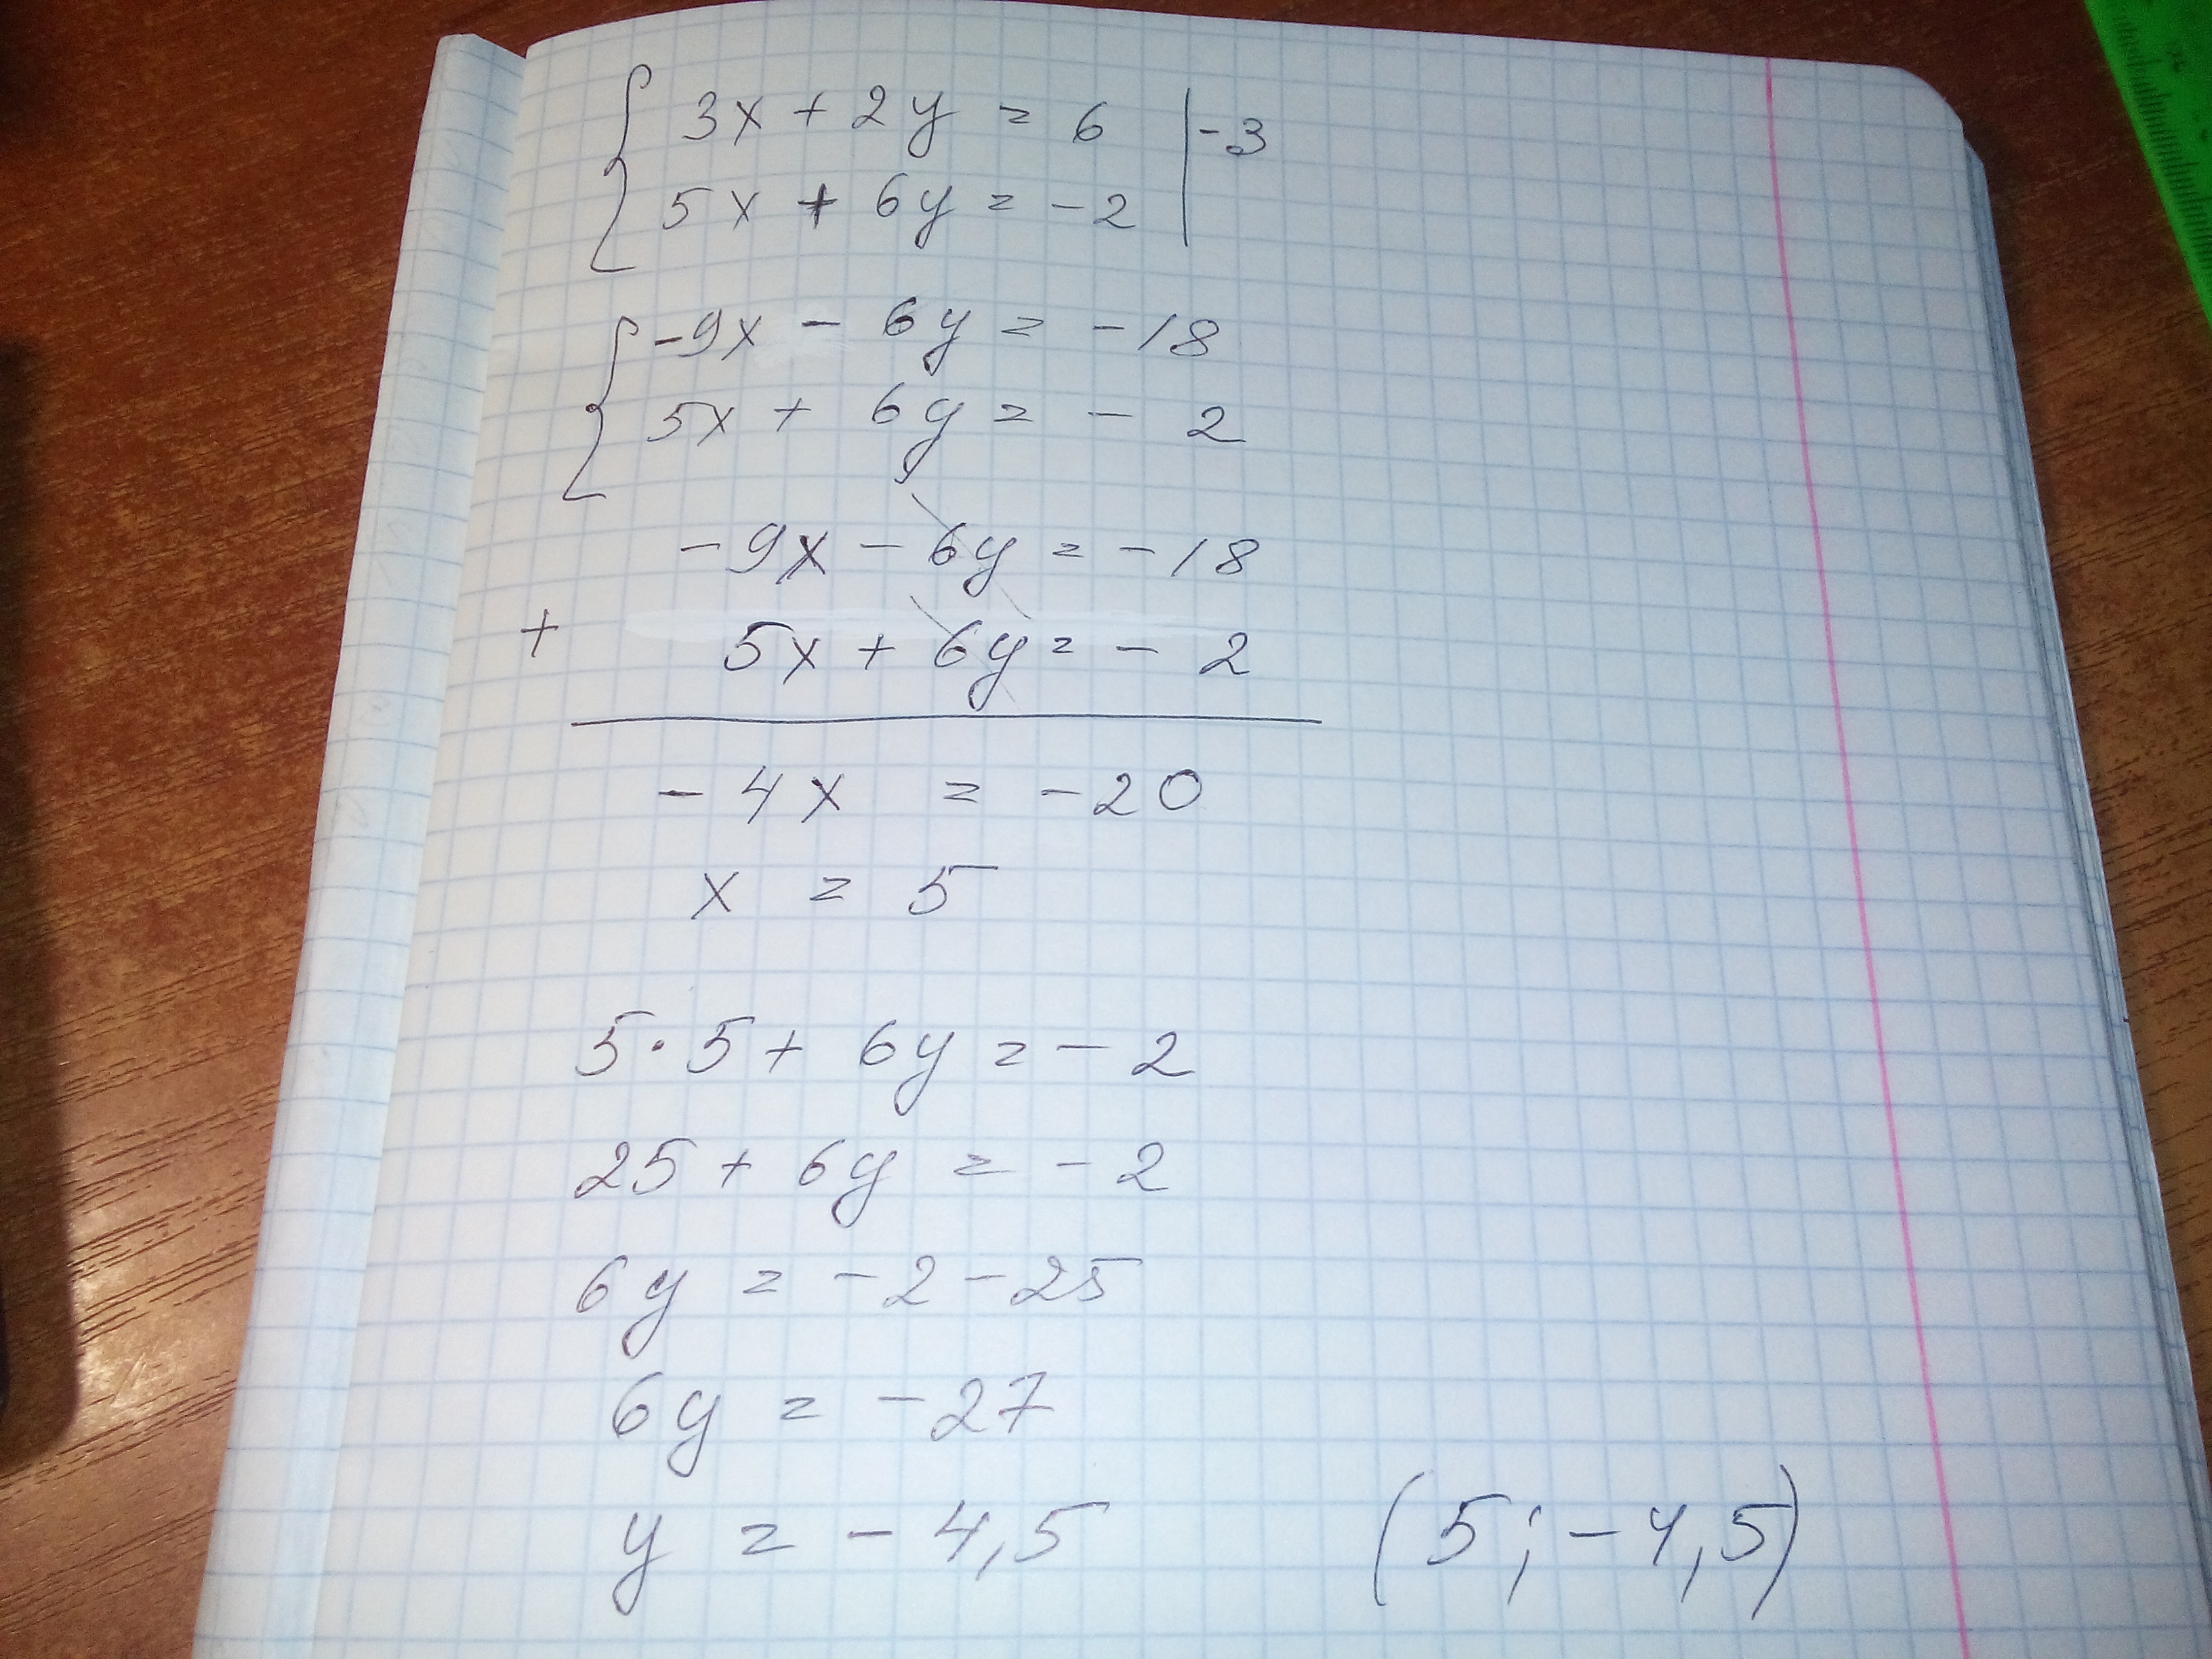 3x + 2y = 6 | -3
5x + 6y = -2
-9x - 6y = -18
5x + 6y = - 2
-9x - 6y = -18
+ 5x + 6y = - 2
-4x = -20
x = 5
5·5 + 6y = -2
25 + 6y = -2
6y = -2 - 25
6y = -27
y = -4,5 (5; -4,5)